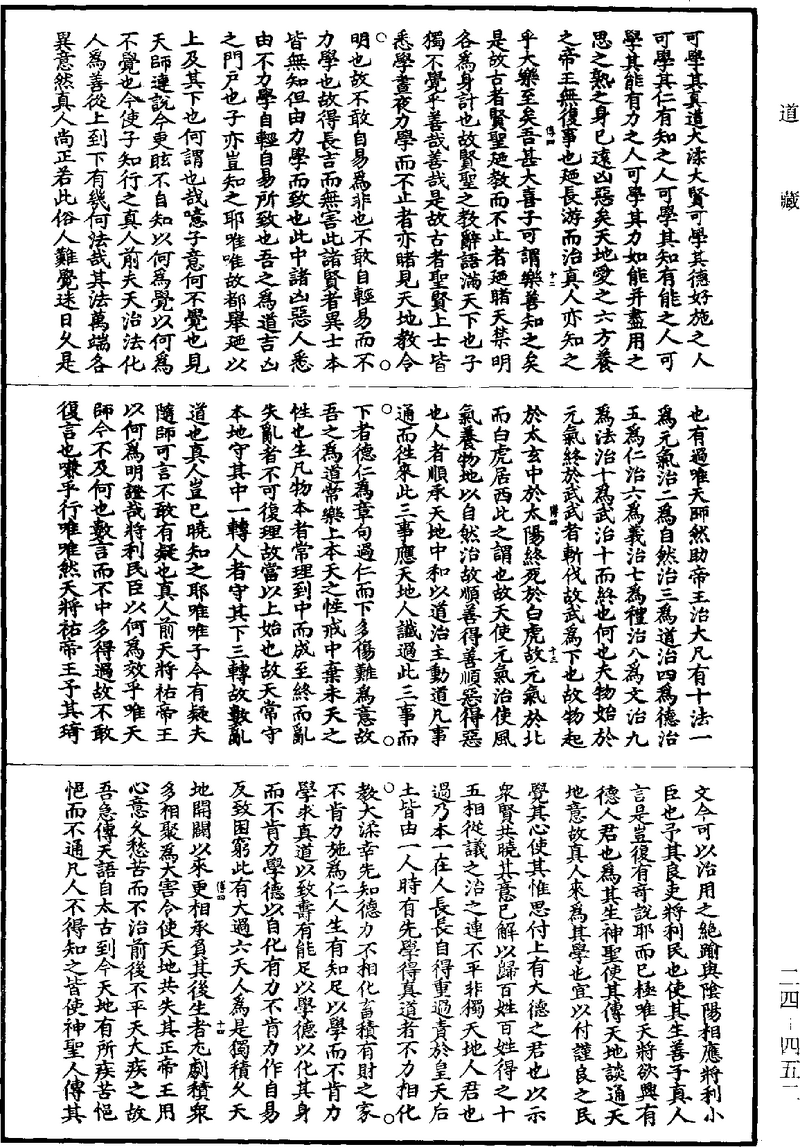 道藏
可學其真道大㴱大賢可學其德好施之人
可學其仁有知之人可學其知有能之人可
學其能有力之人可學其力如能并盡用之
思之熟之身已遠凶惡矣天地愛之六方養
之帝王無復事也𨒂長游而治真人亦知之
傳四 十二
乎大樂至矣吾甚大喜子可謂樂善知之矣
是故古者賢聖𨒂教而不止者𨒂睹天禁明
各為身計也故賢聖之教辭語滿天下也子
獨不覺乎善哉善哉是故古者聖賢上士皆
悉學晝夜力學而不止者亦睹見天地教令
明也故不敢自易為非也不敢自輕易而不
力學也故得長吉而無害此諸賢者異士本
皆無知但由力學而致也此中諸凶惡人悉
由不力學自輕自易所致也吾之為道吉凶
之門戶也子亦豈知之耶唯唯故都舉𨒂以
上及其下也何謂也哉噫子意何不覺也見
天師連說今更眩不自知以何為覺以何為
不覺也今使子知行之真人前夫天治法化
人為善從上到下有幾何法哉其法萬端各
異意然真人尚正若此俗人難覺迷日久是
也有過唯天師然助帝王治大凡有十法一
為元氣治二為自然治三為道治四為德治
五為仁治六為義治七為禮治八為文治九
為法治十為武治十而終也何也夫物始於
元氣終於武武者斬伐故武為下也故物起
傳四 十三
於太玄中於太陽終死於白虎故元氣於北
而白虎居西此之謂也故天使元氣治使風
氣養物地以自然治故順善得善順惡得惡
也人者順承天地中和以道治主動道凡事
通而往來此三事應天地人讖過此三事而
下者德仁為章句過仁而下多傷難為意故
吾之為道常樂上本天之性戒中棄末天之
性也生凡物本者常理到中而成至終而亂
失亂者不可復理故當以上始也故天常守
本地守其中一轉人者守其下三轉故數亂
道也真人豈已曉知之耶唯唯子今有疑夫
隨師可言不敢有疑也真人前天將祐帝王
以何為明證哉將利民臣以何為效乎唯天
師今不及何也數言而不中多得過故不敢
復言也嗛乎行唯唯然天將祐帝王予其琦
文令可以治用之絕踰與陰陽相應將利小
臣也予其良吏將利民也使其生善子真人
言是豈復有奇說耶而已極唯天將欲興有
德人君也為其生神聖使其傳天地談通天
地意故真人來為其學也宜以付謹良之民
覺其心使其惟思付上有大德之君也以示
眾賢共曉其意已解以歸百姓百姓得之十
五相從議之治之連不平非獨天地人君也
過乃本一在人長長自得重過責於皇天后
土皆由一人時有先學得真道者不力相化
教大㴱幸先知德力不相化畜積有財之家
不肯力施為仁人生有知足以學而不肯力
學求真道以致壽有能足以學德以化其身
而不肯力學德以自化有力不肯力作自易
反致困窮此有大過六天人為是獨積久天
傳四 十四
地開闢以來更相承負其後生者尤劇積眾
多相聚為大害令使天地共失其正帝王用
心意久愁苦而不治前後不平天大疾之故
吾急傳天語自太古到今天地有所疾苦悒
悒而不通凡人不得知之皆使神聖人傳其
二四-四五